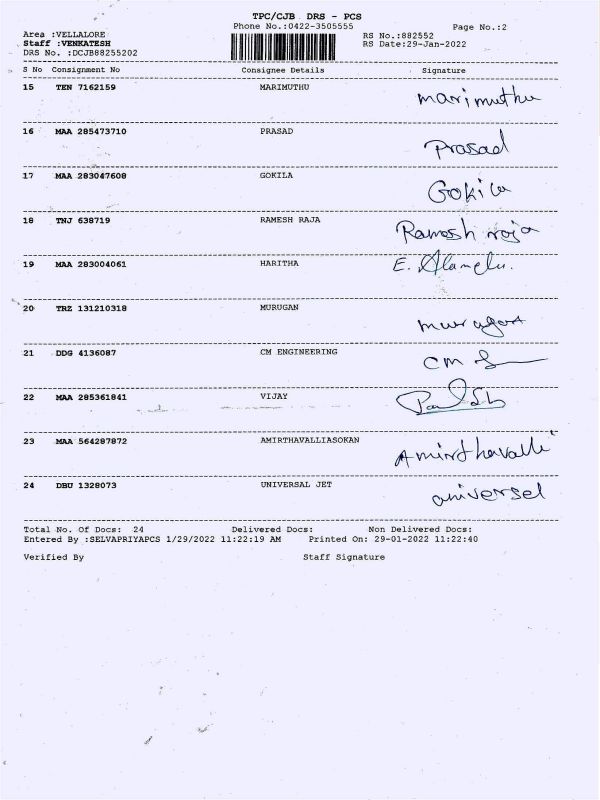 TPC/CJB DRS - PCS
Phone No.:0422-3505555 Page No.:2
Area :VELLALORE RS No.:882552
Staff :VENKATESH RS Date:29-Jan-2022
DRS No. :DCJB88255202
S No Consignment No Consignee Details Signature
15 TEN 7162159 MARIMUTHU marimuthu
16 MAA 285473710 PRASAD Prasad
17 MAA 283047608 GOKILA Gokila
18 TNJ 638719 RAMESH RAJA Ramesh raja
19 MAA 283004061 HARITHA E. Alamelu.
20 TRZ 131210318 MURUGAN murugan
21 DDG 4136087 CM ENGINEERING CM
22 MAA 285361841 VIJAY
23 MAA 564287872 AMIRTHAVALLIASOKAN Amirthavalli
24 DBU 1328073 UNIVERSAL JET universel
Total No. Of Docs: 24 Delivered Docs: Non Delivered Docs:
Entered By :SELVAPRIYAPCS 1/29/2022 11:22:19 AM Printed On: 29-01-2022 11:22:40
Verified By Staff Signature